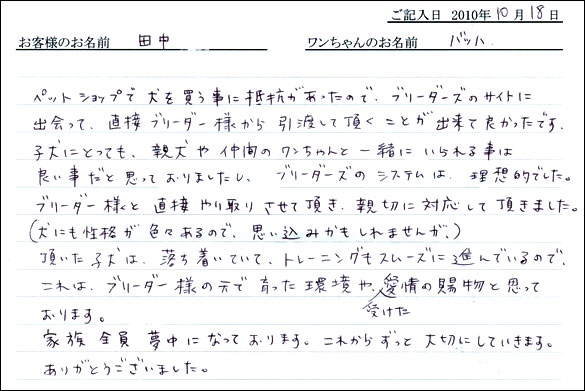 ご記入日 2010年10月18日
お客様のお名前 田中 ワンちゃんのお名前 バッハ
ペットショップで犬を買う事に抵抗があったので、ブリーダーズのサイトに
出会って、直接ブリーダー様から引渡して頂くことが出来て良かったです。
子犬にとっても、親犬や仲間のワンちゃんと一緒にいられる事は
良い事だと思っておりましたし、ブリーダーズのシステムは、理想的でした。
ブリーダー様と直接やり取りさせて頂き、親切に対応して頂きました。
(犬にも性格が色々あるので、思い込みかもしれませんが、)
頂いた子犬は、落ち着いていて、トレーニングもスムーズに進んでいるので、
これは、ブリーダー様の元で育った環境や、愛情の賜物と思って
受けた
おります。
家族全員夢中になっております。これからずっと大切にしていきます。
ありがとうございました。